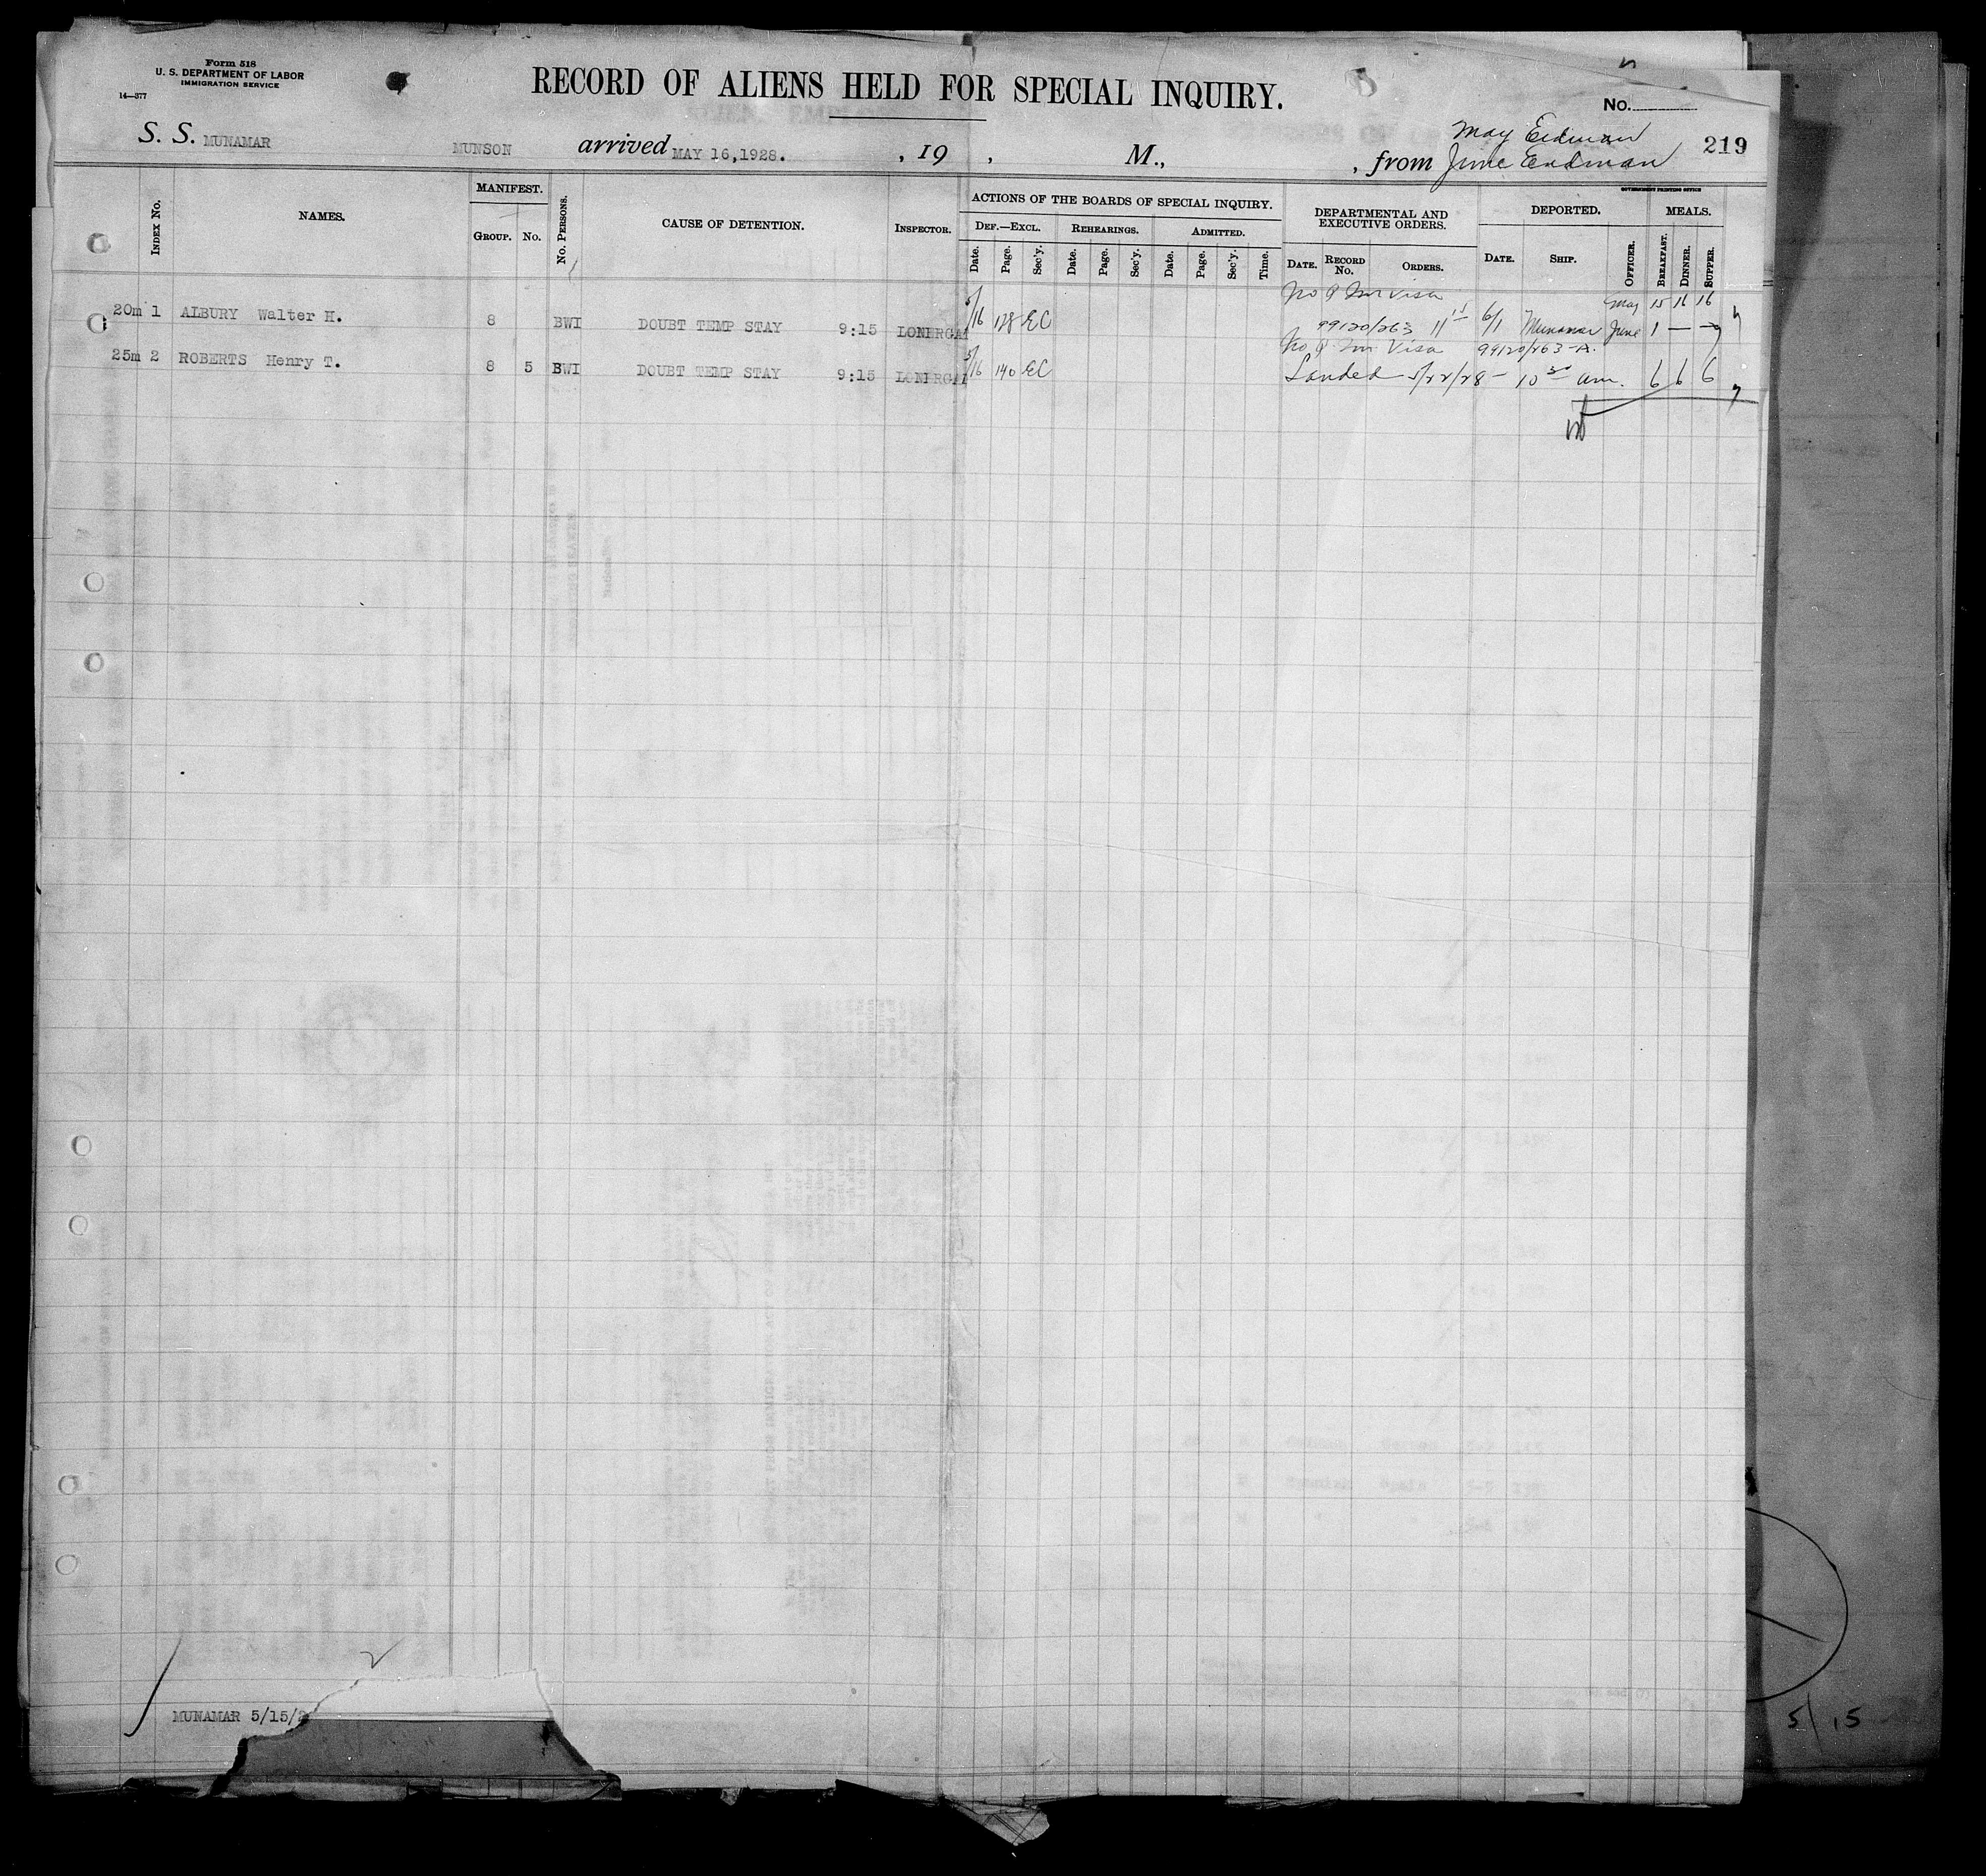 Form 518
U. S. DEPARTMENT OF LABOR
IMMIGRATION SERVICE
14—377
RECORD OF ALIENS HELD FOR SPECIAL INQUIRY.
No.
219
May Erdman
S. S. MUNAMAR MUNSON arrived MAY 16,1928. , 19 , M., , from June Erdman
GOVERNMENT PRINTING OFFICE
INDEX NO. NAMES. MANIFEST. GROUP. NO. NO. PERSONS. CAUSE OF DETENTION. INSPECTOR.
ACTIONS OF THE BOARDS OF SPECIAL INQUIRY.
DEF.—EXCL. REHEARINGS. ADMITTED.
Date. Page. Sec'y. Date. Page. Sec'y. Date. Page. Sec'y. Time.
DEPARTMENTAL AND EXECUTIVE ORDERS.
DATE. RECORD NO. ORDERS.
DEPORTED.
DATE. SHIP. OFFICER.
MEALS.
BREAKFAST. DINNER. SUPPER.
No Visa May 15 16 16
20m 1 ALBURY Walter H. 8 BWI DOUBT TEMP STAY 9:15 LONERGAN 5/16 128 EC 99120/263 6/1 Munamar June 1 —
No Visa 99120/263-A.
25m 2 ROBERTS Henry T. 8 5 BWI DOUBT TEMP STAY 9:15 LONERGAN 5/16 140 EC Landed 5/22/28 - 10 30 am. 6 6 6
2
MUNAMAR 5/15/2
5/15